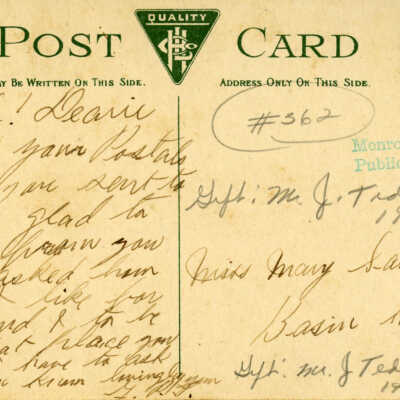 POST CARD
QUALITY
AY BE WRITTEN ON THIS SIDE.
ADDRESS ONLY ON THIS SIDE.
! Dearie
your Postals
you sent to
glad to
from you
asked how
like for
and I to be
at place you
have to ask
know
#362
Monro
Public
Gift: Mr. J. Ted
19
Miss Mary Sa
Basin
Gift: Mr. J Ted
19